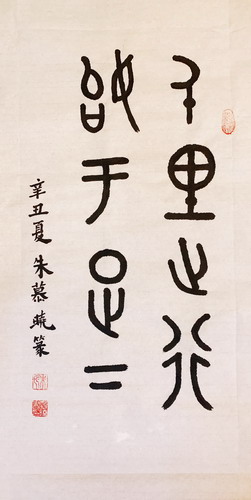 千里之行
始于足下
辛丑夏朱慕晓篆